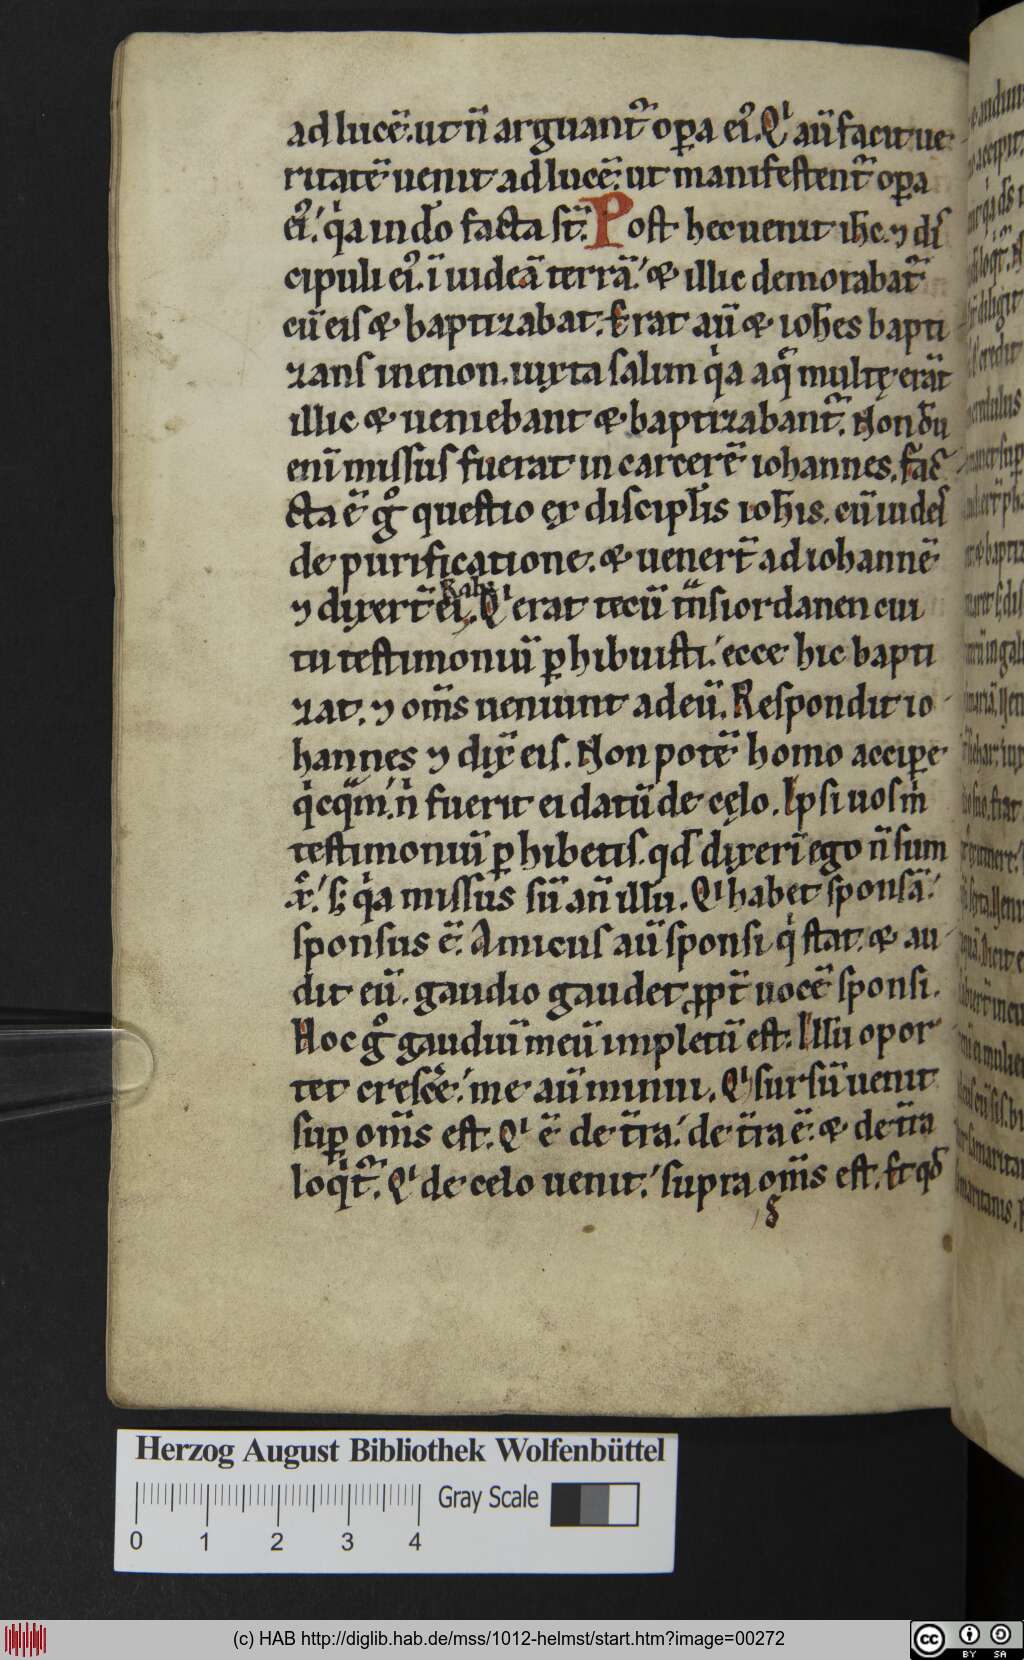 ad lucē. ut n̄ arguant᷑ oꝑa eiꝰ. Qͥ aū facit ue
ritatē uenit ad lucē: ut manifestent᷑ oꝑa
eiꝰ. qͥa in do facta st̄. Post hec uenit ih̄c. ⁊ di
cipuli eiꝰ. ī iudeā terrā. & illic demorabat᷑
cū eis & baptizabat. Erat aū & ioh̄es bapti
zans in enon. iuxta salim qͥa aq̄ multę erāt
illic & ueniebant & baptizabant᷑. Nond̄u
eni missus fuerat in carcerē iohannes. fac
cta ē gͦ questio ex discipl̄is ioh̄is. cū iudeis
de purificatione. & uenert̄ ad iohannē
Rab
⁊ dixert̄ ei. Qͥ erat tecū tn̄s iordanen cui
tu testimoniū ꝑhibuisti. ecce hic bapti
zat. ⁊ om̄s ueniunt ad eū. Respondit io
hannes ⁊ dix̄ eis. Non potē homo accipe
qͥcqͣm. n̄ fuerit ei datū de cęlo. Ipsi uos m̄
testimoniū ꝑhibetis. qd̄ dixerī ego n̄ sum
xp̄. s; qͥa missus sū an̄ illū. Qͥ habet sponsā.
sponsus ē. Amicus aū sponsi qͥ stat. & au
dit eū. gaudio gaudet ꝓpt̄ uocē sponsi.
Hoc gͦ gaudiū meū impletū est. Illū opor
tet cresc̄e. me aū minui. Qͥ sursū uenit
suꝑ om̄s est. Qͥ ē de t̄ra. de t̄ra ē. & de t̄ra
loqͥt᷑. Qͥ de celo uenit. supra om̄s est. Et qd̄
Herzog August Bibliothek Wolfenbüttel
Gray Scale
0 1 2 3 4
(c) HAB http://diglib.hab.de/mss/1012-helmst/start.htm?image=00272
cc BY SA